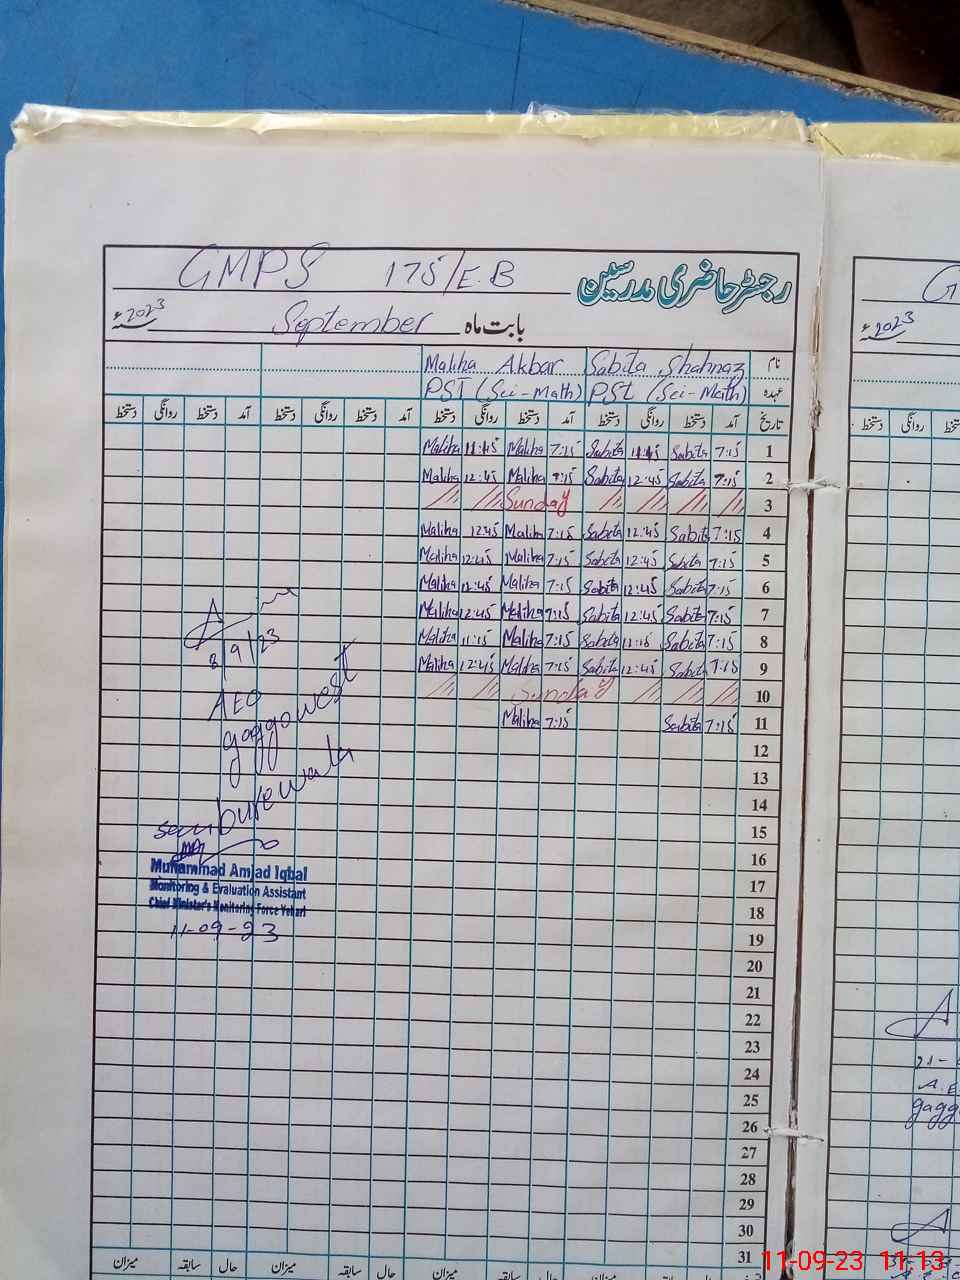 GMPS 175/E.B رجسٹر حاضری مدرسین
بابت ماہ September سنہ 2023ء
نام Sabita Shahnaz Maliha Akbar
عہدہ PST (Sci-Math) PST (Sci-Math)
تاریخ آمد دستخط روانگی دستخط آمد دستخط روانگی دستخط آمد دستخط روانگی دستخط آمد دستخط روانگی دستخط
1 7:15 Sabita 11:45 Sabita 7:15 Maliha 11:45 Maliha
2 7:15 Sabita 12:45 Sabita 7:15 Maliha 12:45 Maliha
3 Sunday
4 7:15 Sabita 12:45 Sabita 7:15 Maliha 12:45 Maliha
5 7:15 Sabita 12:45 Sabita 7:15 Maliha 12:45 Maliha
6 7:15 Sabita 12:45 Sabita 7:15 Maliha 12:45 Maliha
7 7:15 Sabita 12:45 Sabita 7:15 Maliha 12:45 Maliha
8 7:15 Sabita 11:15 Sabita 7:15 Maliha 11:15 Maliha
9 7:15 Sabita 12:45 Sabita 7:15 Maliha 12:45 Maliha
10 Sunday
11 7:15 Sabita 7:15 Maliha
12
13
14
15
16
17
18
19
20
21
22
23
24
25
26
27
28
29
30
31
8/9/23
AEO
gaggowest
burewala
seen
Muhammad Amjad Iqbal
Monitoring & Evaluation Assistant
Chief Minister's Monitoring Force Vehari
11-09-23
حال سابقہ میزان حال سابقہ میزان
G
سنہ 2023ء
روانگی دستخط
21-
A.E
gagg
11-09-23 11:13